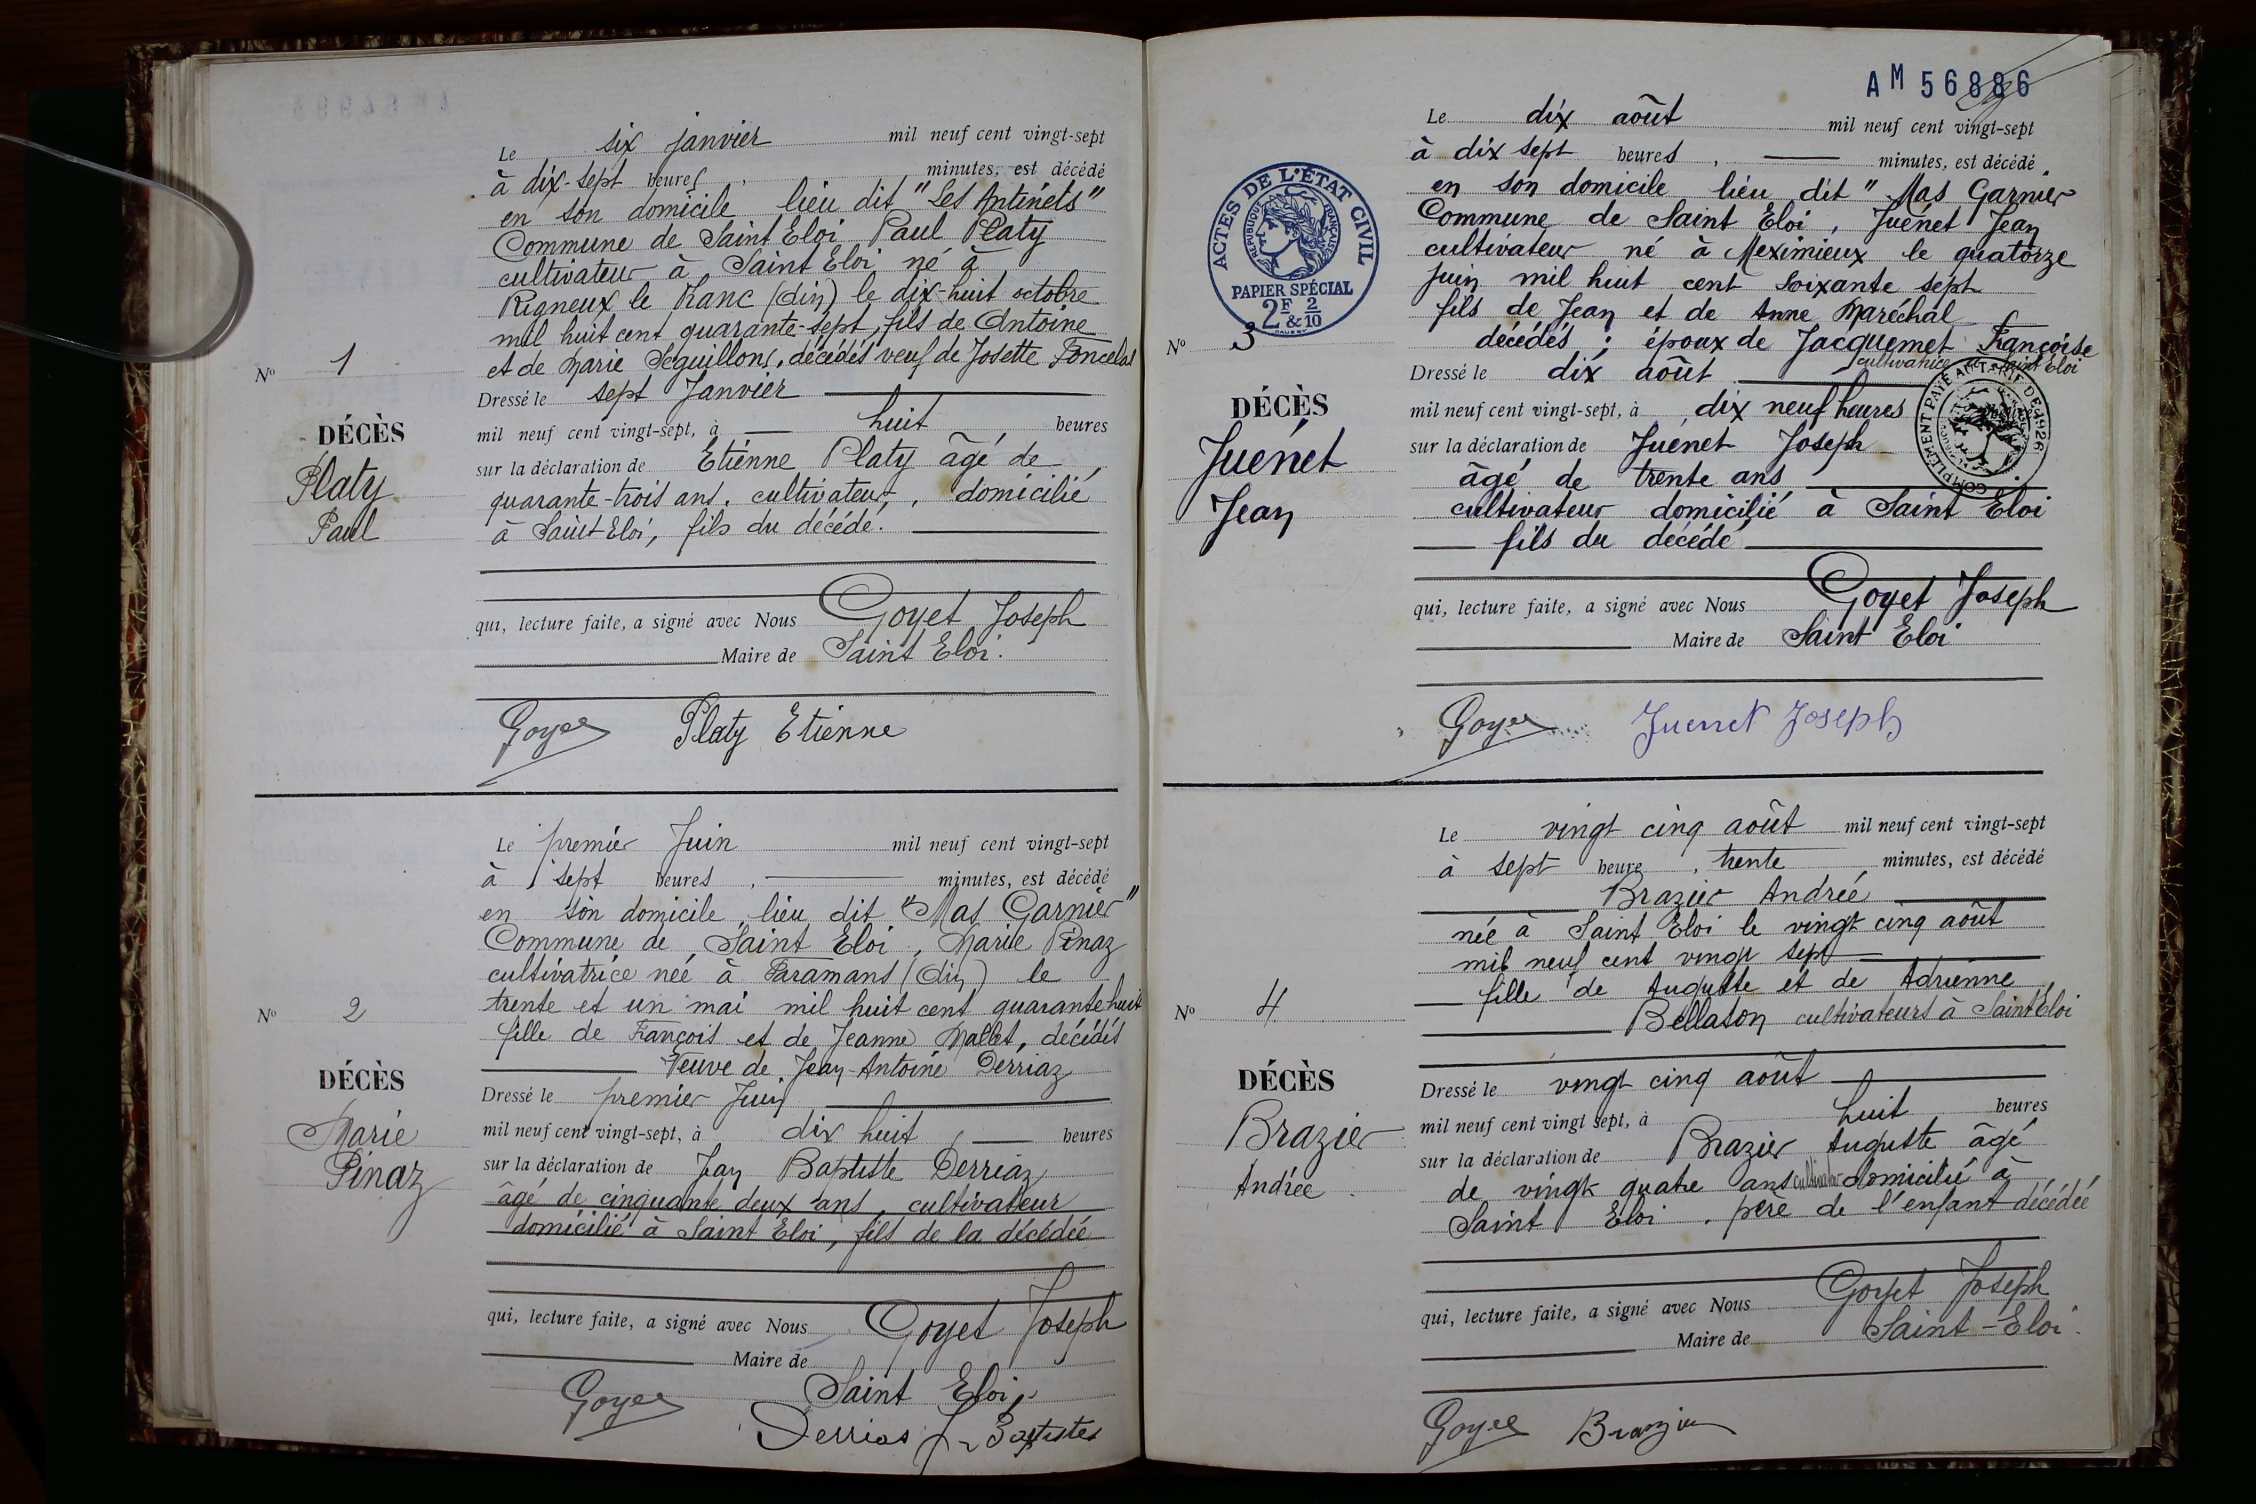 Le six janvier mil neuf cent vingt-sept
à dix-sept heures, minutes, est décédé
en son domicile lieu dit "Les Antinets"
Commune de Saint Eloi Paul Platy
cultivateur à Saint Eloi né à
Rigneux le Franc (Ain) le dix-huit octobre
mil huit cent quarante-sept, fils de Antoine
et de Marie Seguillon, décédés veuf de Josette
Nº 1
Dressé le sept Janvier
DÉCÈS
mil neuf cent vingt-sept, à huit heures
Platy
Paul
sur la déclaration de Étienne Platy âgé de
quarante-trois ans, cultivateur, domicilié
à Saint Eloi, fils du décédé.
qui, lecture faite, a signé avec Nous Goyet Joseph
Maire de Saint Eloi.
Goyet Platy Etienne
Le premier Juin mil neuf cent vingt-sept
à sept heures, minutes, est décédé
en son domicile, lieu dit "Mas Garnier"
Commune de Saint Eloi, Marie Pinaz
cultivatrice née à Faramans (Ain) le
trente et un mai mil huit cent quarante huit
fille de François et de Jeanne Mallet, décédés
Veuve de Jean-Antoine Derriaz
Nº 2
DÉCÈS
Marie
Pinaz
Dressé le premier Juin
mil neuf cent vingt-sept, à dix huit, heures
sur la déclaration de Jean Baptiste Derriaz
âgé de cinquante deux ans, cultivateur
domicilié à Saint Eloi, fils de la décédée
qui, lecture faite, a signé avec Nous Goyet Joseph
Maire de
Saint Eloi,
Goyet
Derrias J Baptiste
AM 56886
ACTES DE L'ÉTAT CIVIL
RÉPUBLIQUE FRANÇAISE
PAPIER SPÉCIAL
2F & 2/10
Le dix août mil neuf cent vingt-sept
à dix sept heures, minutes, est décédé
en son domicile lieu dit "Mas Garnier
Commune de Saint Eloi, Juénet Jean
cultivateur né à Meximieux le quatorze
juin mil huit cent soixante sept
fils de Jean et de Anne Maréchal
décédés ; époux de Jacquemet Françoise
cultivatrice à Saint Eloi
Nº 3
DÉCÈS
Juénet
Jean
Dressé le dix août
mil neuf cent vingt-sept, à dix neuf heures
COMPLEMENT PAYÉ TARIF DE 1926
sur la déclaration de Juénet Joseph
âgé de trente ans
cultivateur domicilié à Saint Eloi
fils du décédé
qui, lecture faite, a signé avec Nous Goyet Joseph
Maire de Saint Eloi
Goyet Juenet Joseph
Le vingt cinq août mil neuf cent vingt-sept
à sept heure, trente minutes, est décédé
Brazier Andrée
née à Saint Eloi le vingt cinq août
mil neuf cent vingt sept
fille de Auguste et de Adrienne
Bellaton cultivateurs à Saint Eloi
Nº 4
DÉCÈS
Brazier
Andrée
Dressé le vingt cinq août
mil neuf cent vingt sept, à huit heures
sur la déclaration de Brazier Auguste âgé
de vingt quatre ans cultivateur domicilié à
Saint Eloi, père de l'enfant décédée
qui, lecture faite, a signé avec Nous Goyet Joseph
Maire de Saint-Eloi.
Goyet Brazier